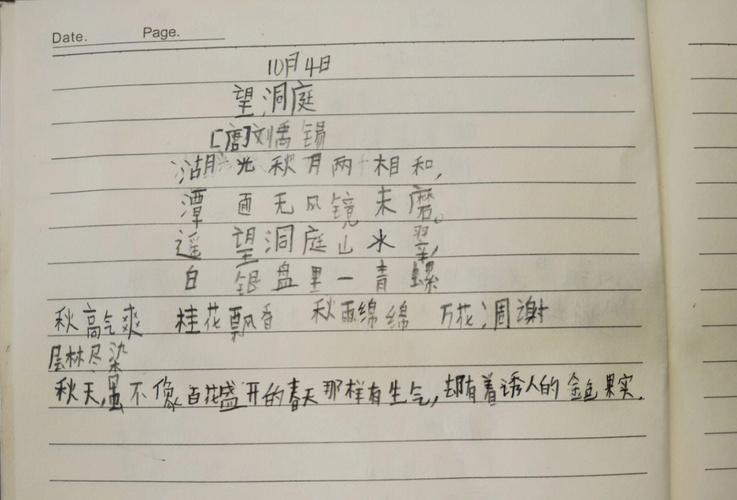 Date. Page.
10月4日
望洞庭
[唐]刘禹锡
湖光秋月两相和,
潭面无风镜未磨。
遥望洞庭山水翠,
白银盘里一青螺
秋高气爽 桂花飘香 秋雨绵绵 万花凋谢
层林尽染
秋天,虽不像百花盛开的春天那样有生气,却有着诱人的金色果实.